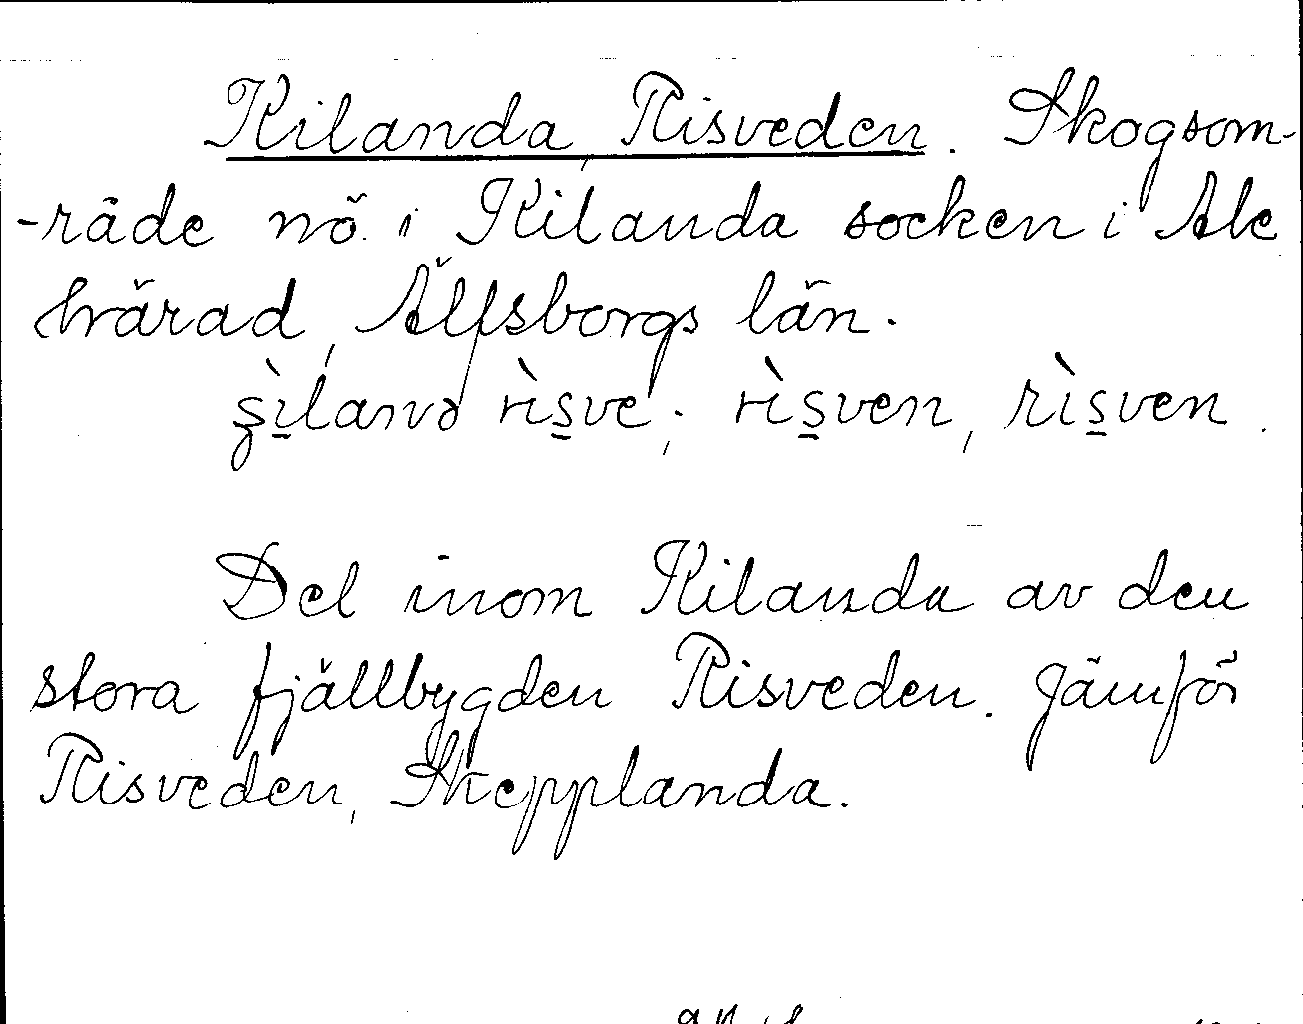 Kilanda, Risveden. Skogsom-
-råde nö. i Kilanda socken i Ale
härad, Älfsborgs län.
s̱ìḻanə rìs̱ve; rìs̱ven, rìs̱ven.
Del inom Kilanda av den
stora fjällbygden Risveden. Jämför
Risveden, Skepplanda.